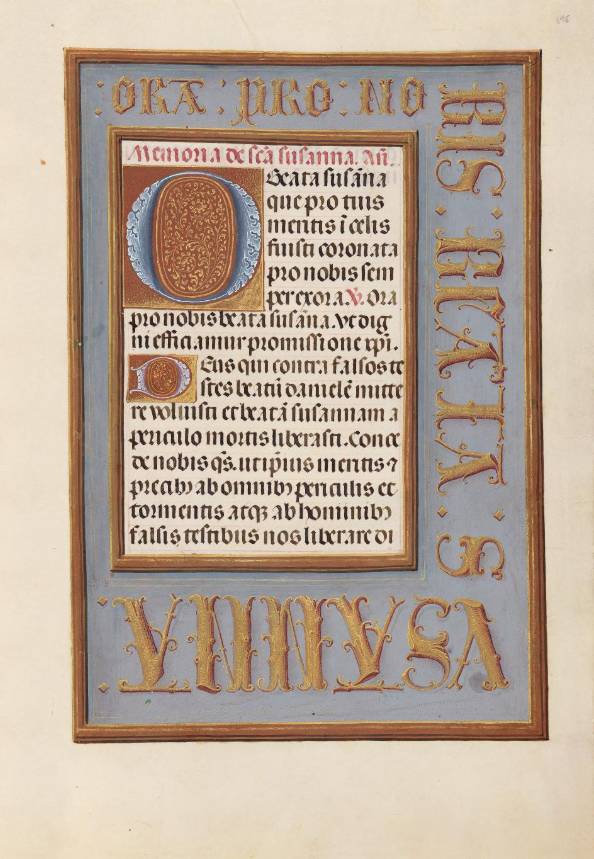 : ORA : PRO : NO
BIS · BEATA · S
VSANNA ·
Memoria de scā susanna. Añ.
O Beata susāna
que pro tuis
meritis ī celis
fuisti coronata
pro nobis sem
per exora. ℣. Ora
pro nobis beata susāna. Vt dig
ni efficiamur promissione xp̄i.
Deus qui contra falsos te
stes beatū danielē mitte
re voluisti et beatā susannam a
periculo mortis liberasti. Conce
de nobis q̄s. ut ip̄ius meritis ⁊
precibꝫ ab omnibꝫ periculis et
tormentis atqꝫ ab hominibꝫ
falsis testibus nos liberare di